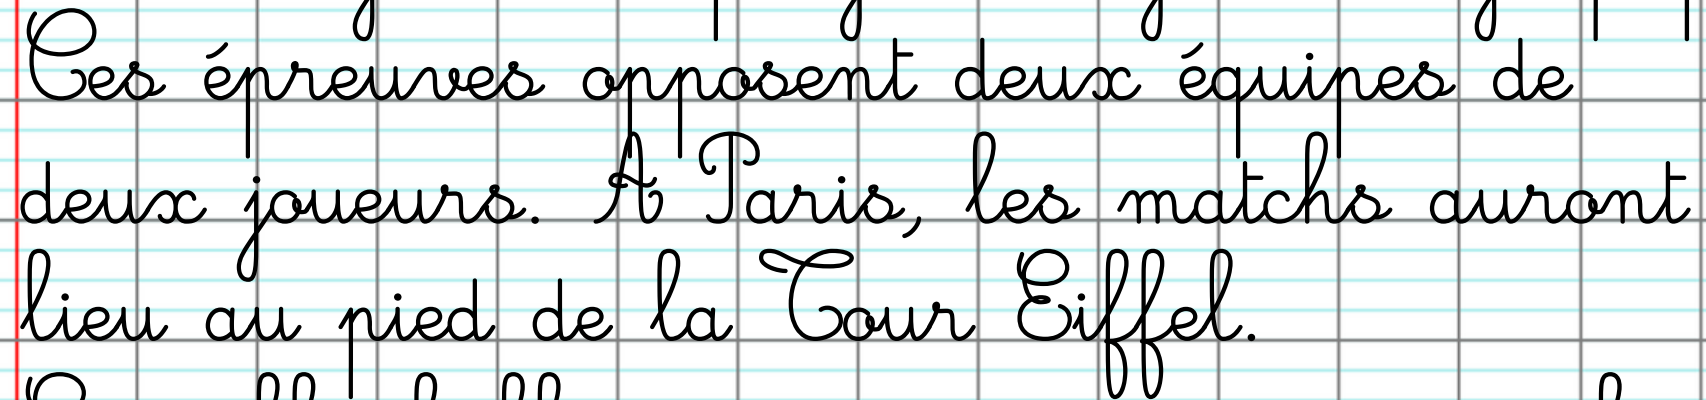 Ces épreuves opposent deux équipes de
deux joueurs. A Paris, les matchs auront
lieu au pied de la Tour Eiffel.